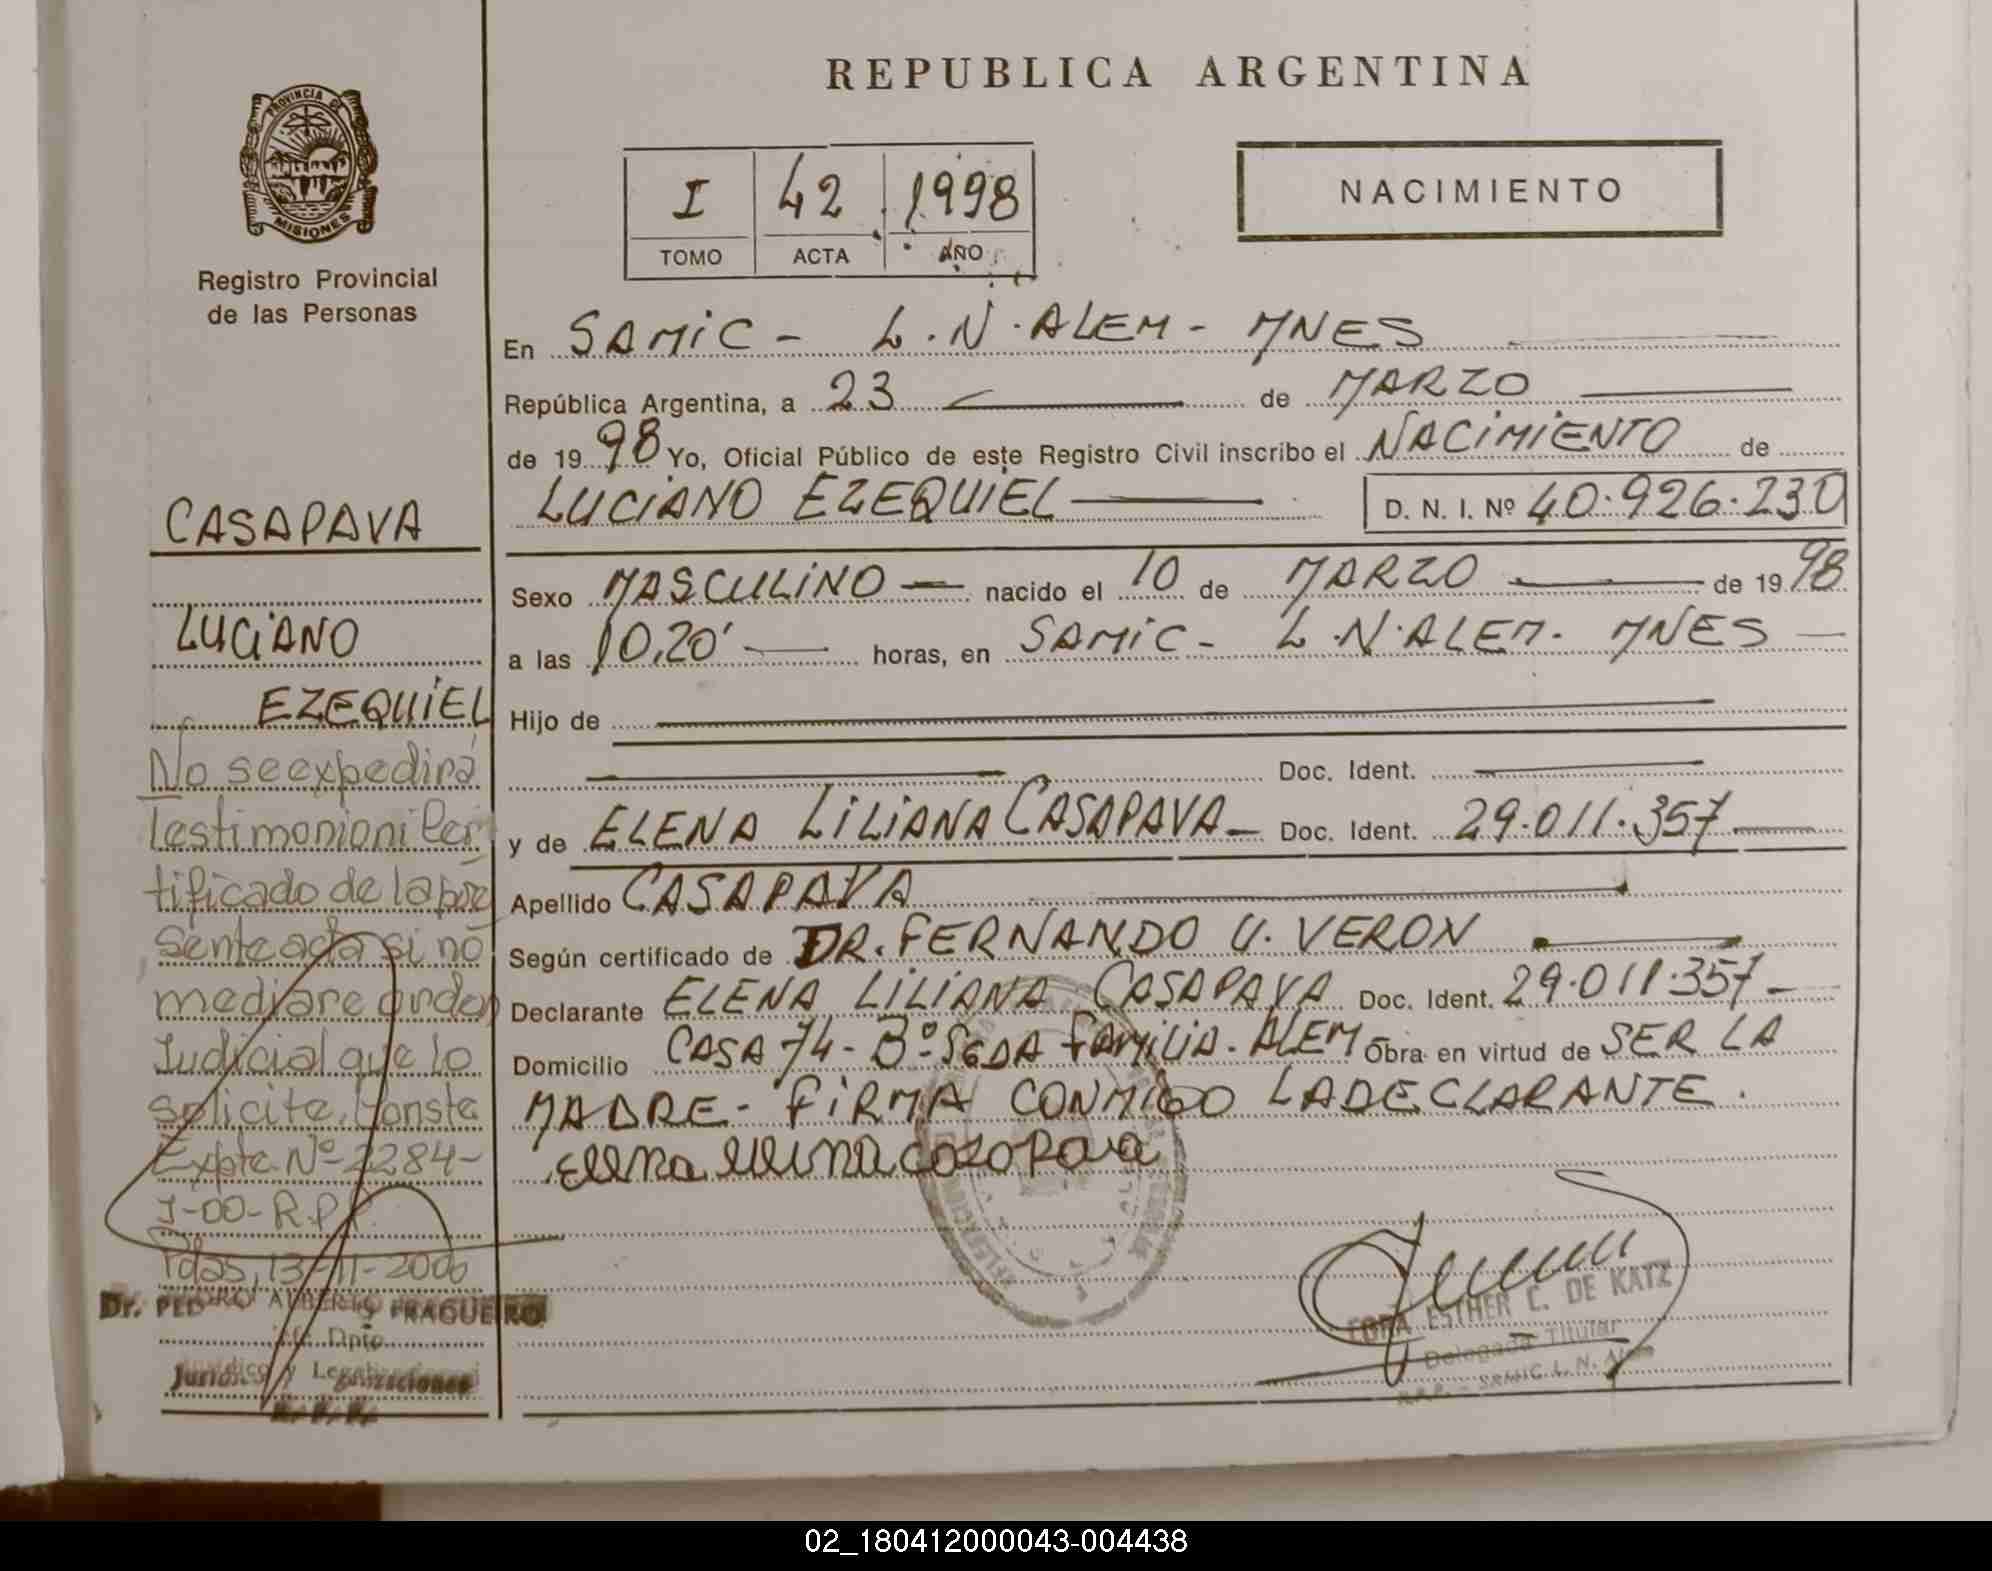 REPUBLICA ARGENTINA
PROVINCIA DE
MISIONES
Registro Provincial
de las Personas
I 42 1998
TOMO ACTA AÑO
NACIMIENTO
En SAMIC - L.N. ALEM - MNES
República Argentina, a 23 de MARZO
de 1998 Yo, Oficial Público de este Registro Civil inscribo el NACIMIENTO de
LUCIANO EZEQUIEL D. N. I. Nº 40.926.230
Sexo MASCULINO nacido el 10 de MARZO de 1998
a las 10,20' horas, en SAMIC - L.N. ALEM. MNES
Hijo de
Doc. Ident.
y de ELENA LILIANA CASAPAVA Doc. Ident. 29.011.357
Apellido CASAPAVA
Según certificado de DR. FERNANDO U. VERON
Declarante ELENA LILIANA CASAPAVA Doc. Ident. 29.011.357
Domicilio CASA 74 - Bº SGDA FAMILIA. ALEM Obra en virtud de SER LA
MADRE - FIRMA CONMIGO LA DECLARANTE.
CASAPAVA
LUCIANO
EZEQUIEL
No se expedirá
Testimonio ni Cer
tificado de la pre
sente acta si no
mediare orden
Judicial que lo
solicite, Conste
Expte. Nº 2284-
J-00-R.P.P.
Pdas, 13-11-2000
Dr. PEDRO ALBERTO FRAGUEIRO
Dpto.
Jurídico y Legalizaciones
ESTHER C. DE KATZ
Delegada Titular
R.P.P. - SAMIC L. N. Alem
02_180412000043-004438